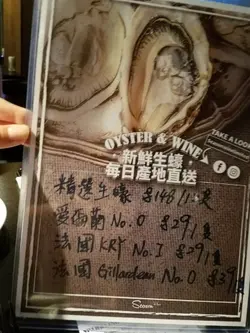 OYSTER & WINE
TAKE A LOOK
新鮮生蠔，
每日產地直送
精選生蠔 $148/12隻
愛爾蘭 No.0 $29/隻
法國 KRY No.1 $29/隻
法國 Gillardeau No.0 $39